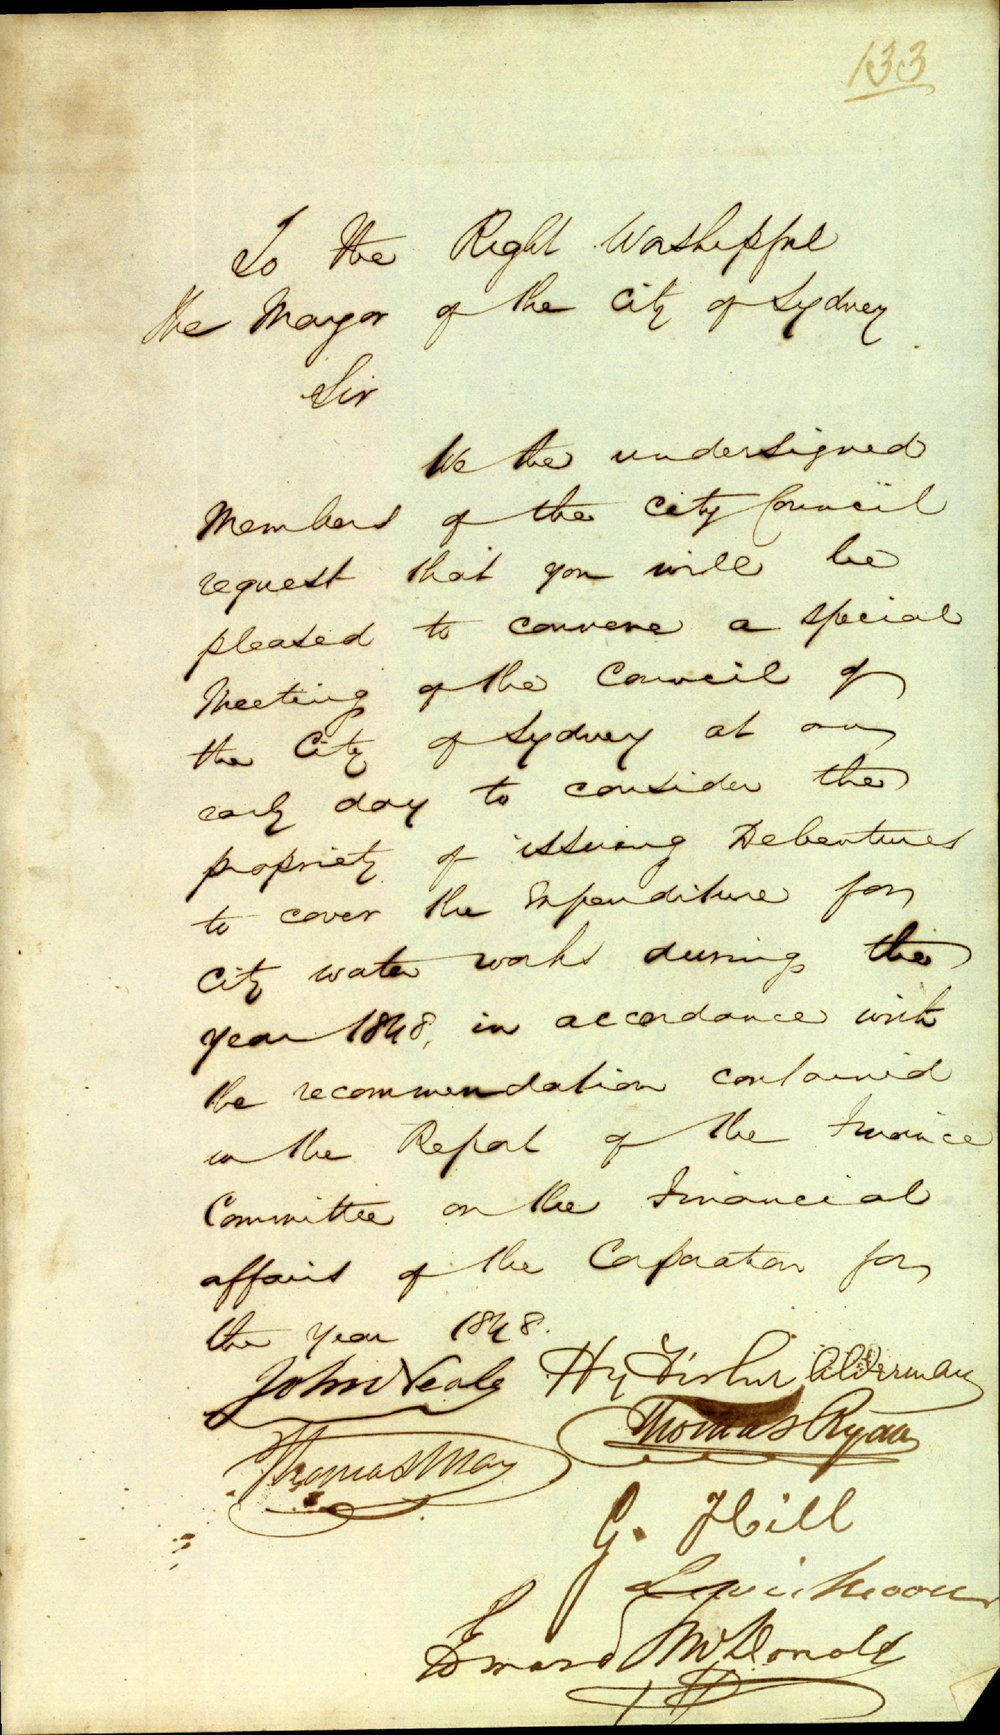 133
To the Right Worshipful
the Mayor of the City of Sydney
Sir
We the undersigned
Members of the City Council
request that you will be
pleased to convene a special
Meeting of the Council of
the City of Sydney at an
early day to consider the
propriety of issuing Debentures
to cover the Expenditure for
City water works during the
year 1848, in accordance with
the recommendation contained
in the Report of the Finance
Committee on the Financial
affairs of the Corporation for
the year 1848.
John Neale Hy Fisher Alderman
Thomas Ryan
Thomas May
G. Hill
Edward McDonald